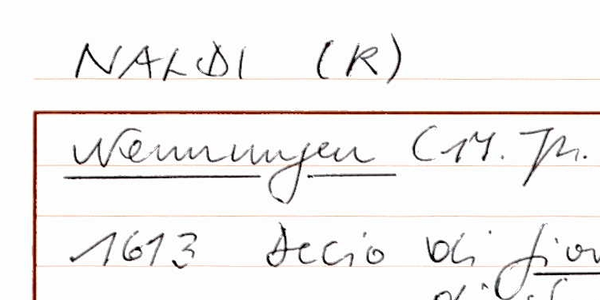 NALDI (R)
Nennungen (17. Jh.
1613 Decio di
di